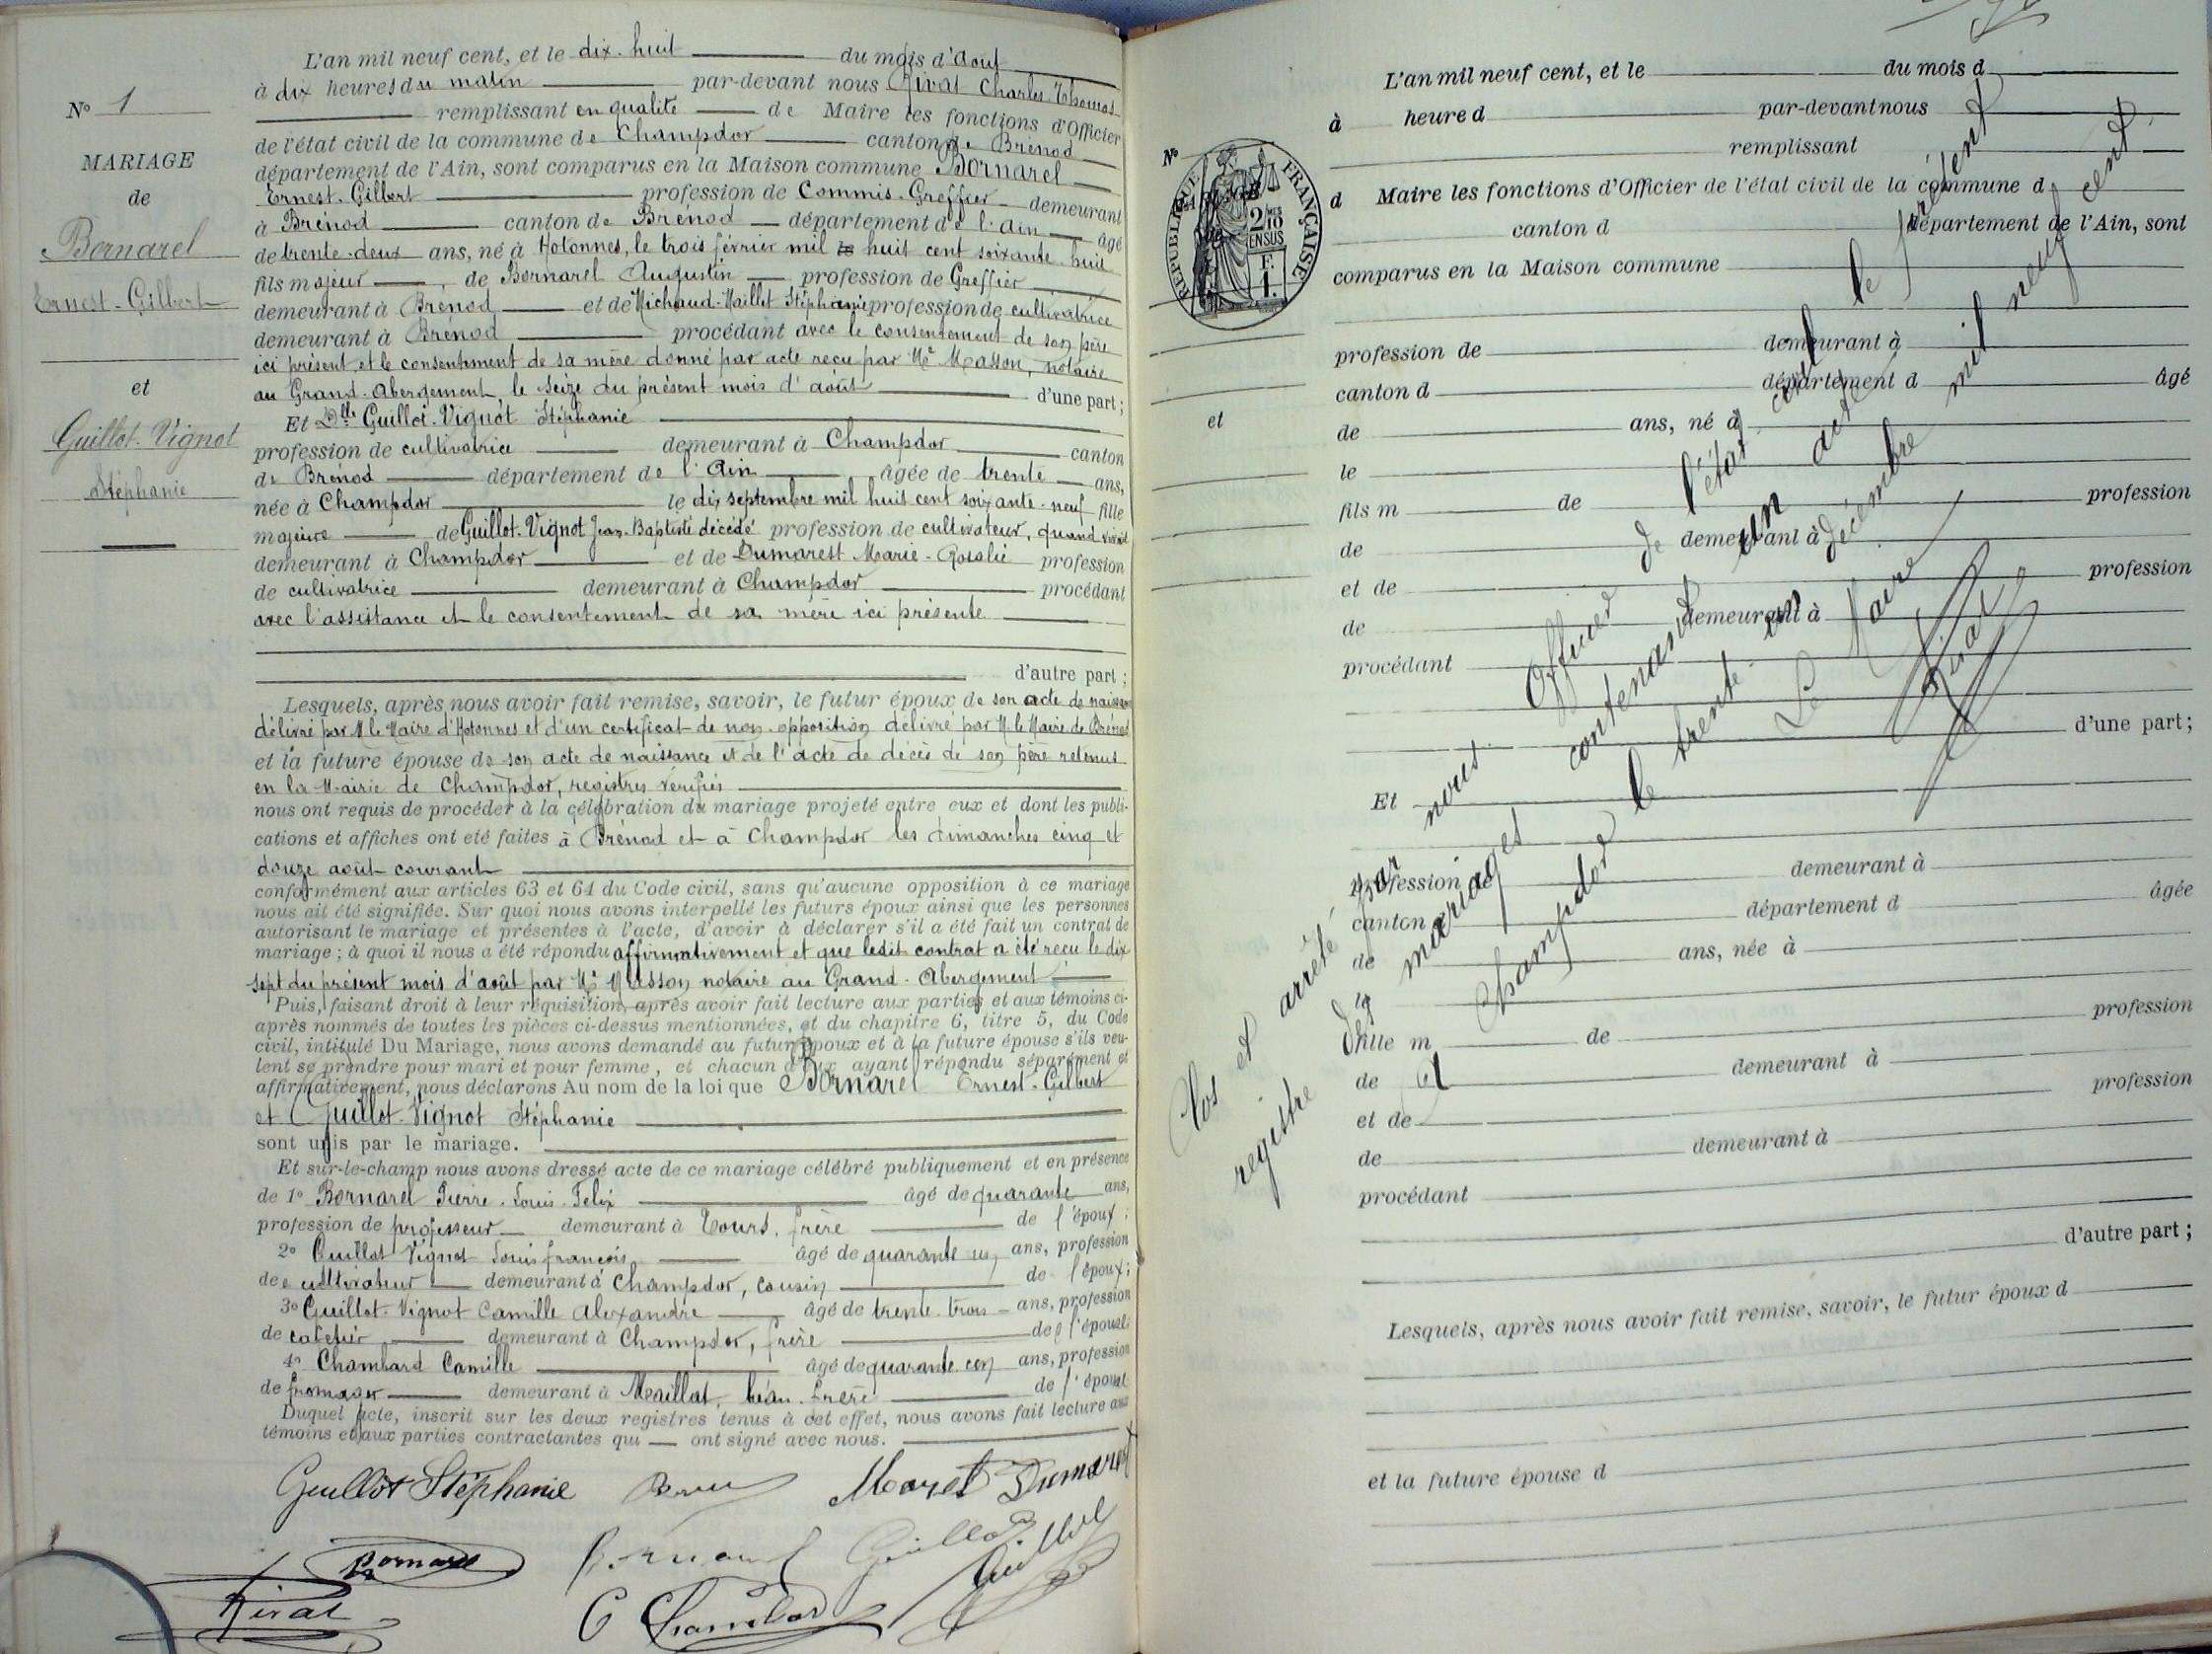 N° 1
MARIAGE
de
Bornarel
Ernest-Gilbert
et
Guillot-Vignot
Stéphanie
L'an mil neuf cent, et le dix-huit du mois d'Aout
à dix heures du matin par-devant nous Rivat Charles Thomas
remplissant en qualité de Maire les fonctions d'Officier
de l'état civil de la commune de Champdor canton de Brénod
département de l'Ain, sont comparus en la Maison commune Bornarel
Ernest-Gilbert profession de Commis-Greffier demeurant
à Brénod canton de Brénod département de l'Ain âgé
de trente-deux ans, né à Hotonnes, le trois février mil huit cent soixante-huit
fils majeur, de Bornarel Augustin profession de Greffier
demeurant à Brénod et de Michaud-Maillet Stéphanie profession de cultivatrice
demeurant à Brénod procédant avec le consentement de son père
ici présent et le consentement de sa mère donné par acte reçu par Me Masson, notaire
au Grand-Abergement, le seize du présent mois d'août d'une part;
Et Dlle Guillot-Vignot Stéphanie
profession de cultivatrice demeurant à Champdor canton
de Brénod département de l'Ain âgée de trente ans,
née à Champdor le dix septembre mil huit cent soixante-neuf fille
majeure de Guillot-Vignot Jean-Baptiste décédé profession de cultivateur, quand vivait
demeurant à Champdor et de Dumarest Marie-Rosalie profession
de cultivatrice demeurant à Champdor procédant
avec l'assistance et le consentement de sa mère ici présente
d'autre part;
Lesquels, après nous avoir fait remise, savoir, le futur époux de son acte de naissance
délivré par M. le Maire d'Hotonnes et d'un certificat de non-opposition délivré par M. le Maire de Brénod
et la future épouse de son acte de naissance et de l'acte de décès de son père retenus
en la Mairie de Champdor, registres vérifiés
nous ont requis de procéder à la célébration du mariage projeté entre eux et dont les publi-
cations et affiches ont été faites à Brénod et à Champdor les dimanches cinq et
douze août courant
conformément aux articles 63 et 64 du Code civil, sans qu'aucune opposition à ce mariage
nous ait été signifiée. Sur quoi nous avons interpellé les futurs époux ainsi que les personnes
autorisant le mariage et présentes à l'acte, d'avoir à déclarer s'il a été fait un contrat de
mariage; à quoi il nous a été répondu affirmativement et que ledit contrat a été reçu le dix
sept du présent mois d'août par Me Masson notaire au Grand-Abergement
Puis, faisant droit à leur réquisition, après avoir fait lecture aux parties et aux témoins ci-
après nommés de toutes les pièces ci-dessus mentionnées, et du chapitre 6, titre 5, du Code
civil, intitulé Du Mariage, nous avons demandé au futur époux et à la future épouse s'ils veu-
lent se prendre pour mari et pour femme, et chacun d'eux ayant répondu séparément et
affirmativement, nous déclarons Au nom de la loi que Bornarel Ernest-Gilbert
et Guillot-Vignot Stéphanie
sont unis par le mariage.
Et sur-le-champ nous avons dressé acte de ce mariage célébré publiquement et en présence
de 1° Bornarel Pierre-Louis-Felix âgé de quarante ans,
profession de professeur demeurant à Tours, frère de l'époux;
2° Guillot Vignot Louis françois âgé de quarante un ans, profession
de cultivateur demeurant à Champdor, cousin de l'époux;
3° Guillot-Vignot Camille Alexandre âgé de trente-trois ans, profession
de cafetier demeurant à Champdor, frère de l'épouse
4° Chambard Camille âgé de quarante-cinq ans, profession
de fromager demeurant à Maillat, beau-frère de l'épouse
Duquel acte, inscrit sur les deux registres tenus à cet effet, nous avons fait lecture aux
témoins et aux parties contractantes qui ont signé avec nous.
Guillot Stéphanie Dumarest
Bornarel Guillot Guillot
Rivat C Chambard
L'an mil neuf cent, et le du mois d
à heure d par-devant nous
remplissant
d Maire les fonctions d'Officier de l'état civil de la commune d
canton d département de l'Ain, sont
comparus en la Maison commune
N°
RÉPUBLIQUE FRANÇAISE
2/10
EN SUS
F.
1.
profession de demeurant à
canton d département d âgé
et
de ans, né à
le
fils m de profession
de demeurant à
et de profession
de demeurant à
procédant
d'une part;
Et
profession de demeurant à
canton d département d âgée
de ans, née à
le
fille m de profession
de demeurant à
et de profession
de demeurant à
procédant
d'autre part;
Lesquels, après nous avoir fait remise, savoir, le futur époux d
et la future épouse d
Clos et arrêté par nous Officier de l'état civil le présent
registre des mariages contenant un acte
à Champdor le trente un décembre mil neuf cent.
Le Maire
Rivat